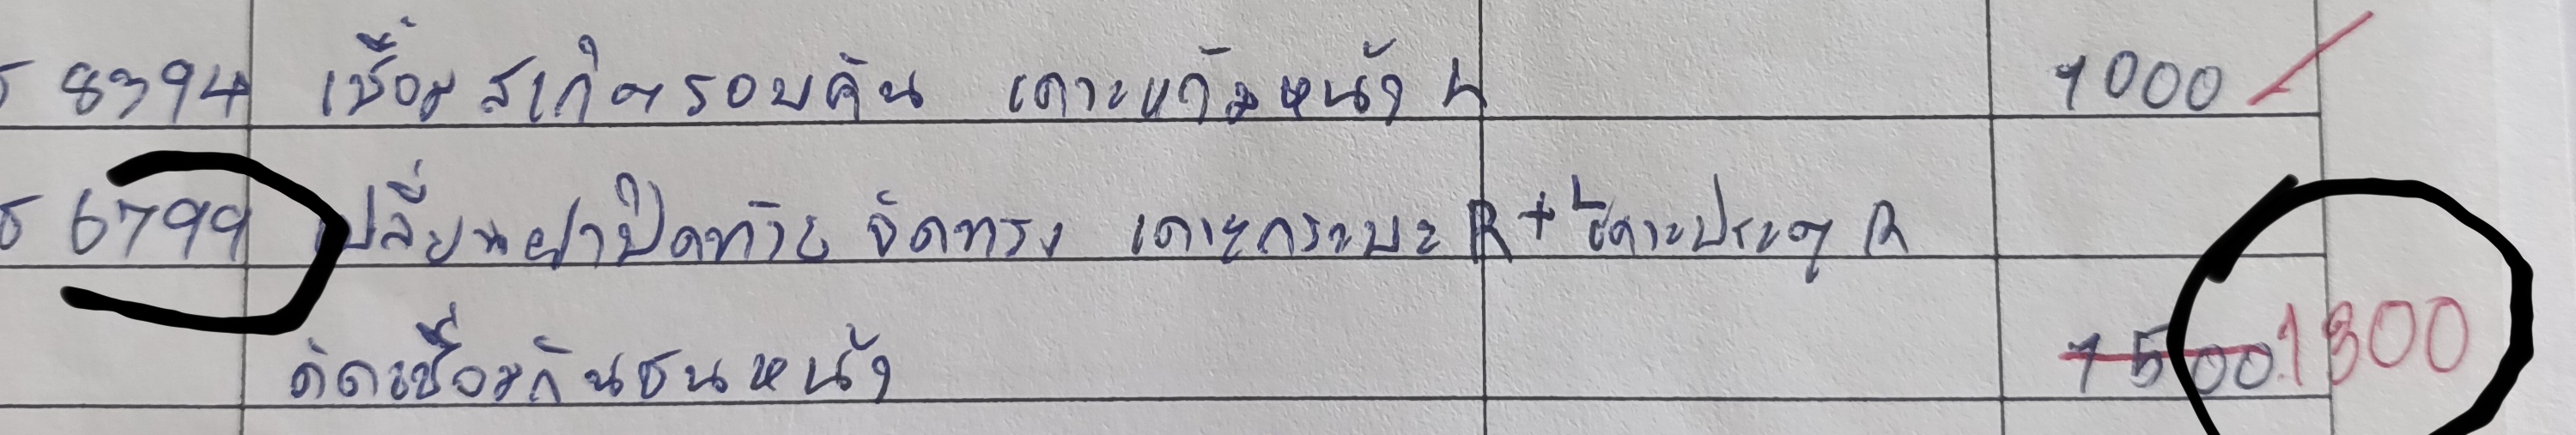 8394 เชื้อมสเก๋ตรอบคัน เคาะแก้มหน้า L 1000
6799 เปลี่ยนฝาปิดท้าย จัดทรง เคาะกระบะ R+L เคาะประตู R
ตัดเชื่อมกันชนหน้า 1500 1300